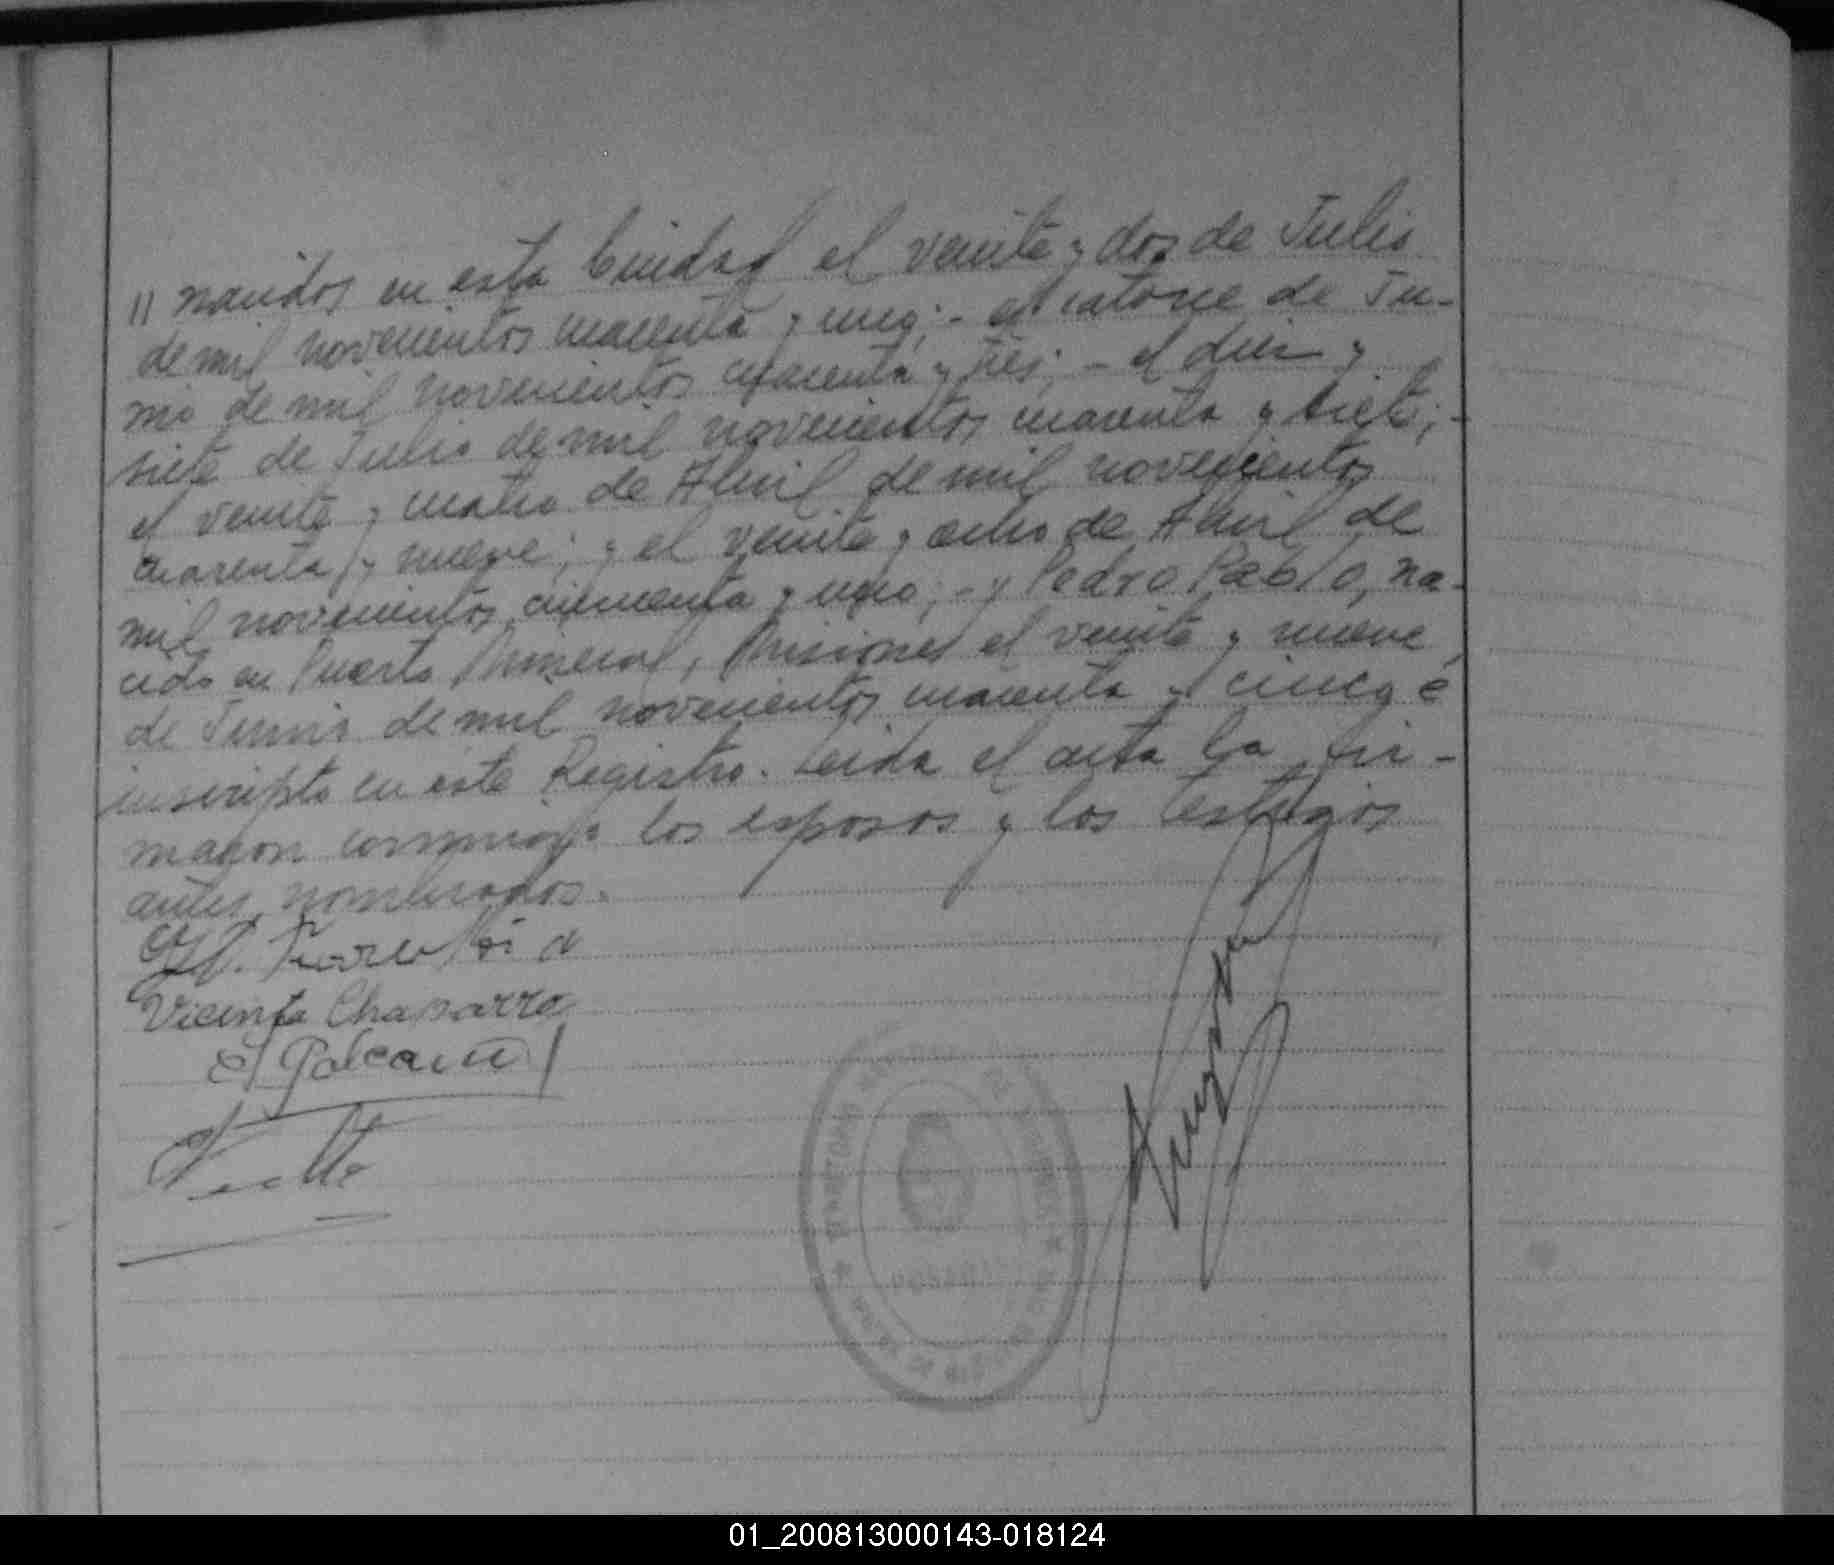 " nacidos en esta Ciudad el veinte y dos de Julio
de mil novecientos cuarenta y uno; - el catorce de Ju-
nio de mil novecientos cuarenta y tres; - el diez y
siete de Julio de mil novecientos cuarenta y siete; -
el veinte y cuatro de Abril de mil novecientos
cuarenta y nueve; y el veinte y ocho de Abril de
mil novecientos cincuenta y uno; - y Pedro Pablo, na-
cido en Puerto Mineral, Misiones el veinte y nueve
de Junio de mil novecientos cuarenta y cinco e
inscripto en este Registro. Leida el acta la fir-
maron conmigo los esposos y los testigos
antes nombrados.
Vicenta Chaparro
POSADAS
01_200813000143-018124